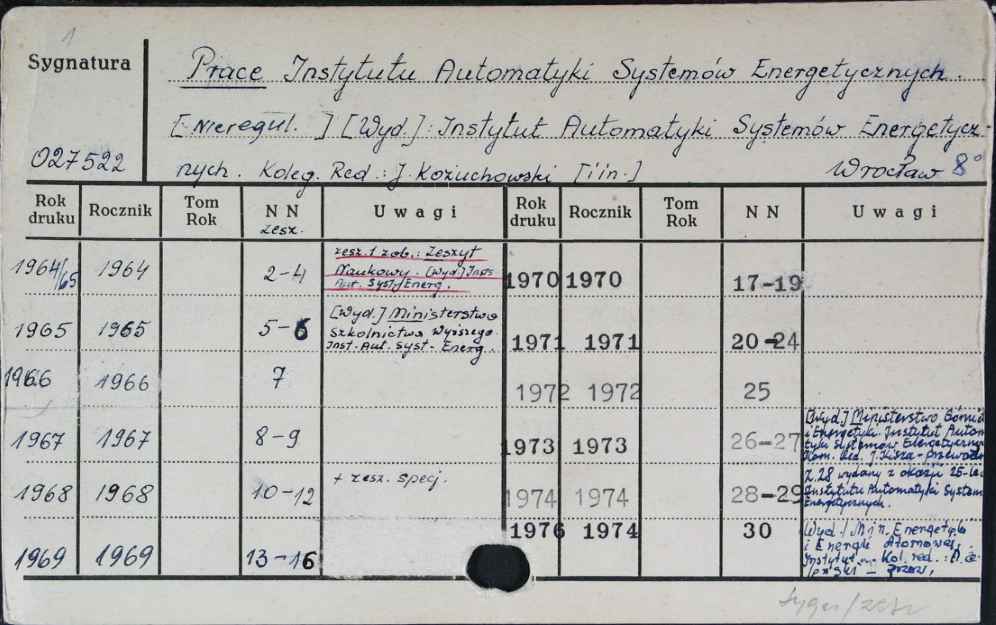 1
Sygnatura
Prace Instytutu Automatyki Systemów Energetycznych.
[Nieregul.] [Wyd.]: Instytut Automatyki Systemów Energetycz-
027522
nych. Koleg. Red.: J. Kożuchowski [i in.] Wrocław 8°
Rok druku Rocznik Tom Rok NN zesz. Uwagi Rok druku Rocznik Tom Rok NN Uwagi
1964/65 1964 2-4 zesz. 1 zob.: Zeszyt
Naukowy. [Wyd.] Inst.
Aut. Syst. Energ.
1970 1970 17-19
1965 1965 5-6 [Wyd.] Ministerstwo
Szkolnictwa Wyższego.
Inst. Aut. Syst. Energ.
1971 1971 20-24
1966 1966 7
1972 1972 25
1967 1967 8-9
1973 1973 26-27 [Wyd.] Ministerstwo Górnic
i Energetyki Instytut Autom
tyki Systemów Energetyczny
Kom. Red. J. Kisza-przewodn
1968 1968 10-12 + zesz. specj.
1974 1974 28-29 Z. 28 wydany z okazji 25-lec
Instytutu Automatyki System
Energetycznych.
1969 1969 13-16
1976 1974 30 Wyd. Min. Energetyki
i Energii Atomowej
Instytut Kol. red.: